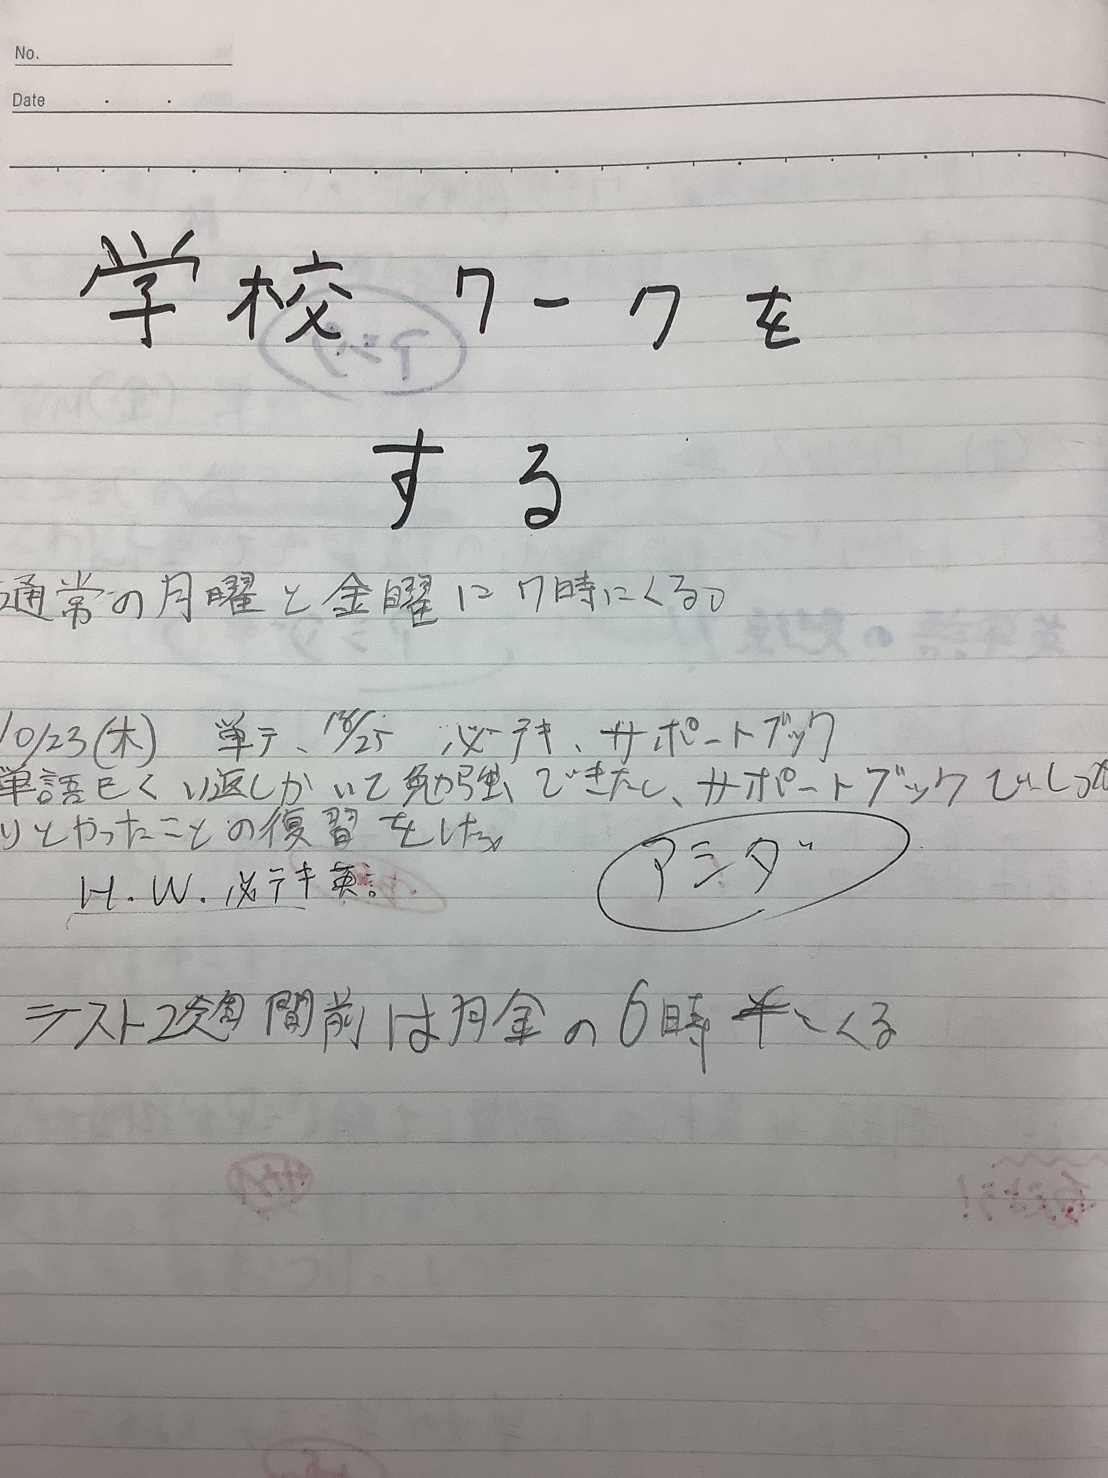 No.
Date
学校ワークを
する
通常の月曜と金曜に7時にくる。
10/23(木) 単テ、18/25 必テキ、サポートブック
単語もくり返しかいて勉強できたし、サポートブックでしっか
りとやったことの復習をした。
アシダ
H.W. 必テキ英語
テスト2週間前は月金の6時半にくる